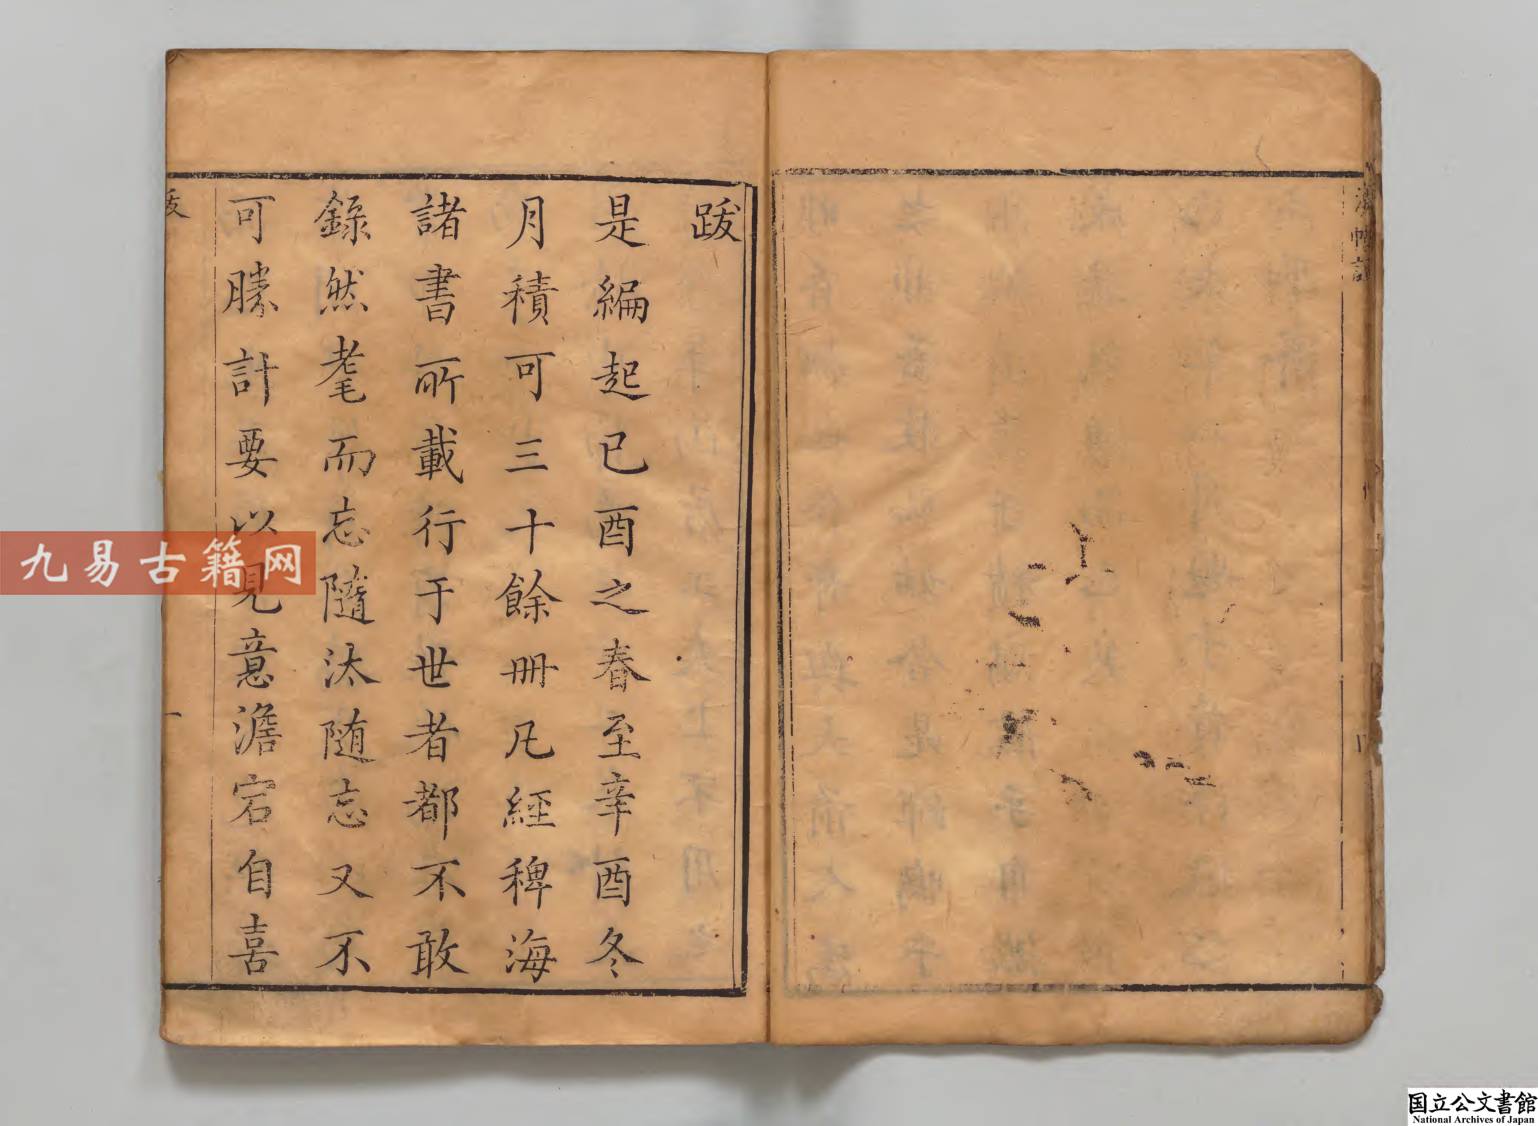 跋
是編起已酉之春至辛酉冬
月積可三十餘冊凡經稗海
諸書所載行于世者都不敢
錄然耄而忘隨汰随忘又不
可勝計要以見意澹宕自喜
跋
一
九易古籍网
国立公文書館
National Archives of Japan